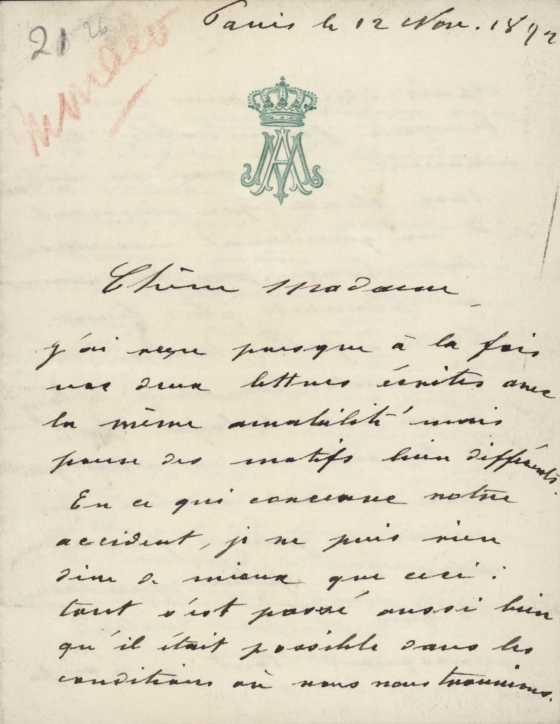 21 26
Monaco
Paris le 12 Nov. 1892
MA
Chère Madame
J'ai reçu presque à la fois
vos deux lettres écrites avec
la même amabilité mais
pour des motifs bien différents.
En ce qui concerne notre
accident, je ne puis rien
dire de mieux que ceci :
tout s'est passé aussi bien
qu'il était possible dans les
conditions où nous nous trouvions.